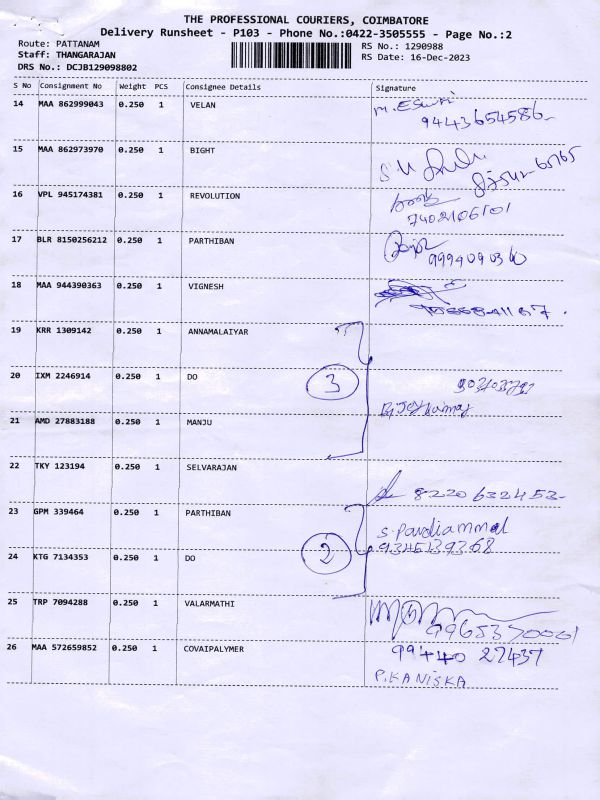 THE PROFESSIONAL COURIERS, COIMBATORE
Delivery Runsheet - P103 - Phone No.:0422-3505555 - Page No.:2
Route: PATTANAM
RS No.: 1290988
Staff: THANGARAJAN
RS Date: 16-Dec-2023
DRS No.: DCJB129098802
S No Consignment No Weight PCS Consignee Details Signature
14 MAA 862999043 0.250 1 VELAN M. Eswri
9443654586
15 MAA 862973970 0.250 1 BIGHT
16 VPL 945174381 0.250 1 REVOLUTION
7402106101
17 BLR 8150256212 0.250 1 PARTHIBAN
9994090360
18 MAA 944390363 0.250 1 VIGNESH
19 KRR 1309142 0.250 1 ANNAMALAIYAR
20 IXM 2246914 0.250 1 DO 3
21 AMD 27883188 0.250 1 MANJU
22 TKY 123194 0.250 1 SELVARAJAN
8220632453
23 GPM 339464 0.250 1 PARTHIBAN S. Pandiammal
24 KTG 7134353 0.250 1 DO 2 9345139368
25 TRP 7094288 0.250 1 VALARMATHI
9965370001
26 MAA 572659852 0.250 1 COVAIPALYMER 99440 27437
P.KANISKA